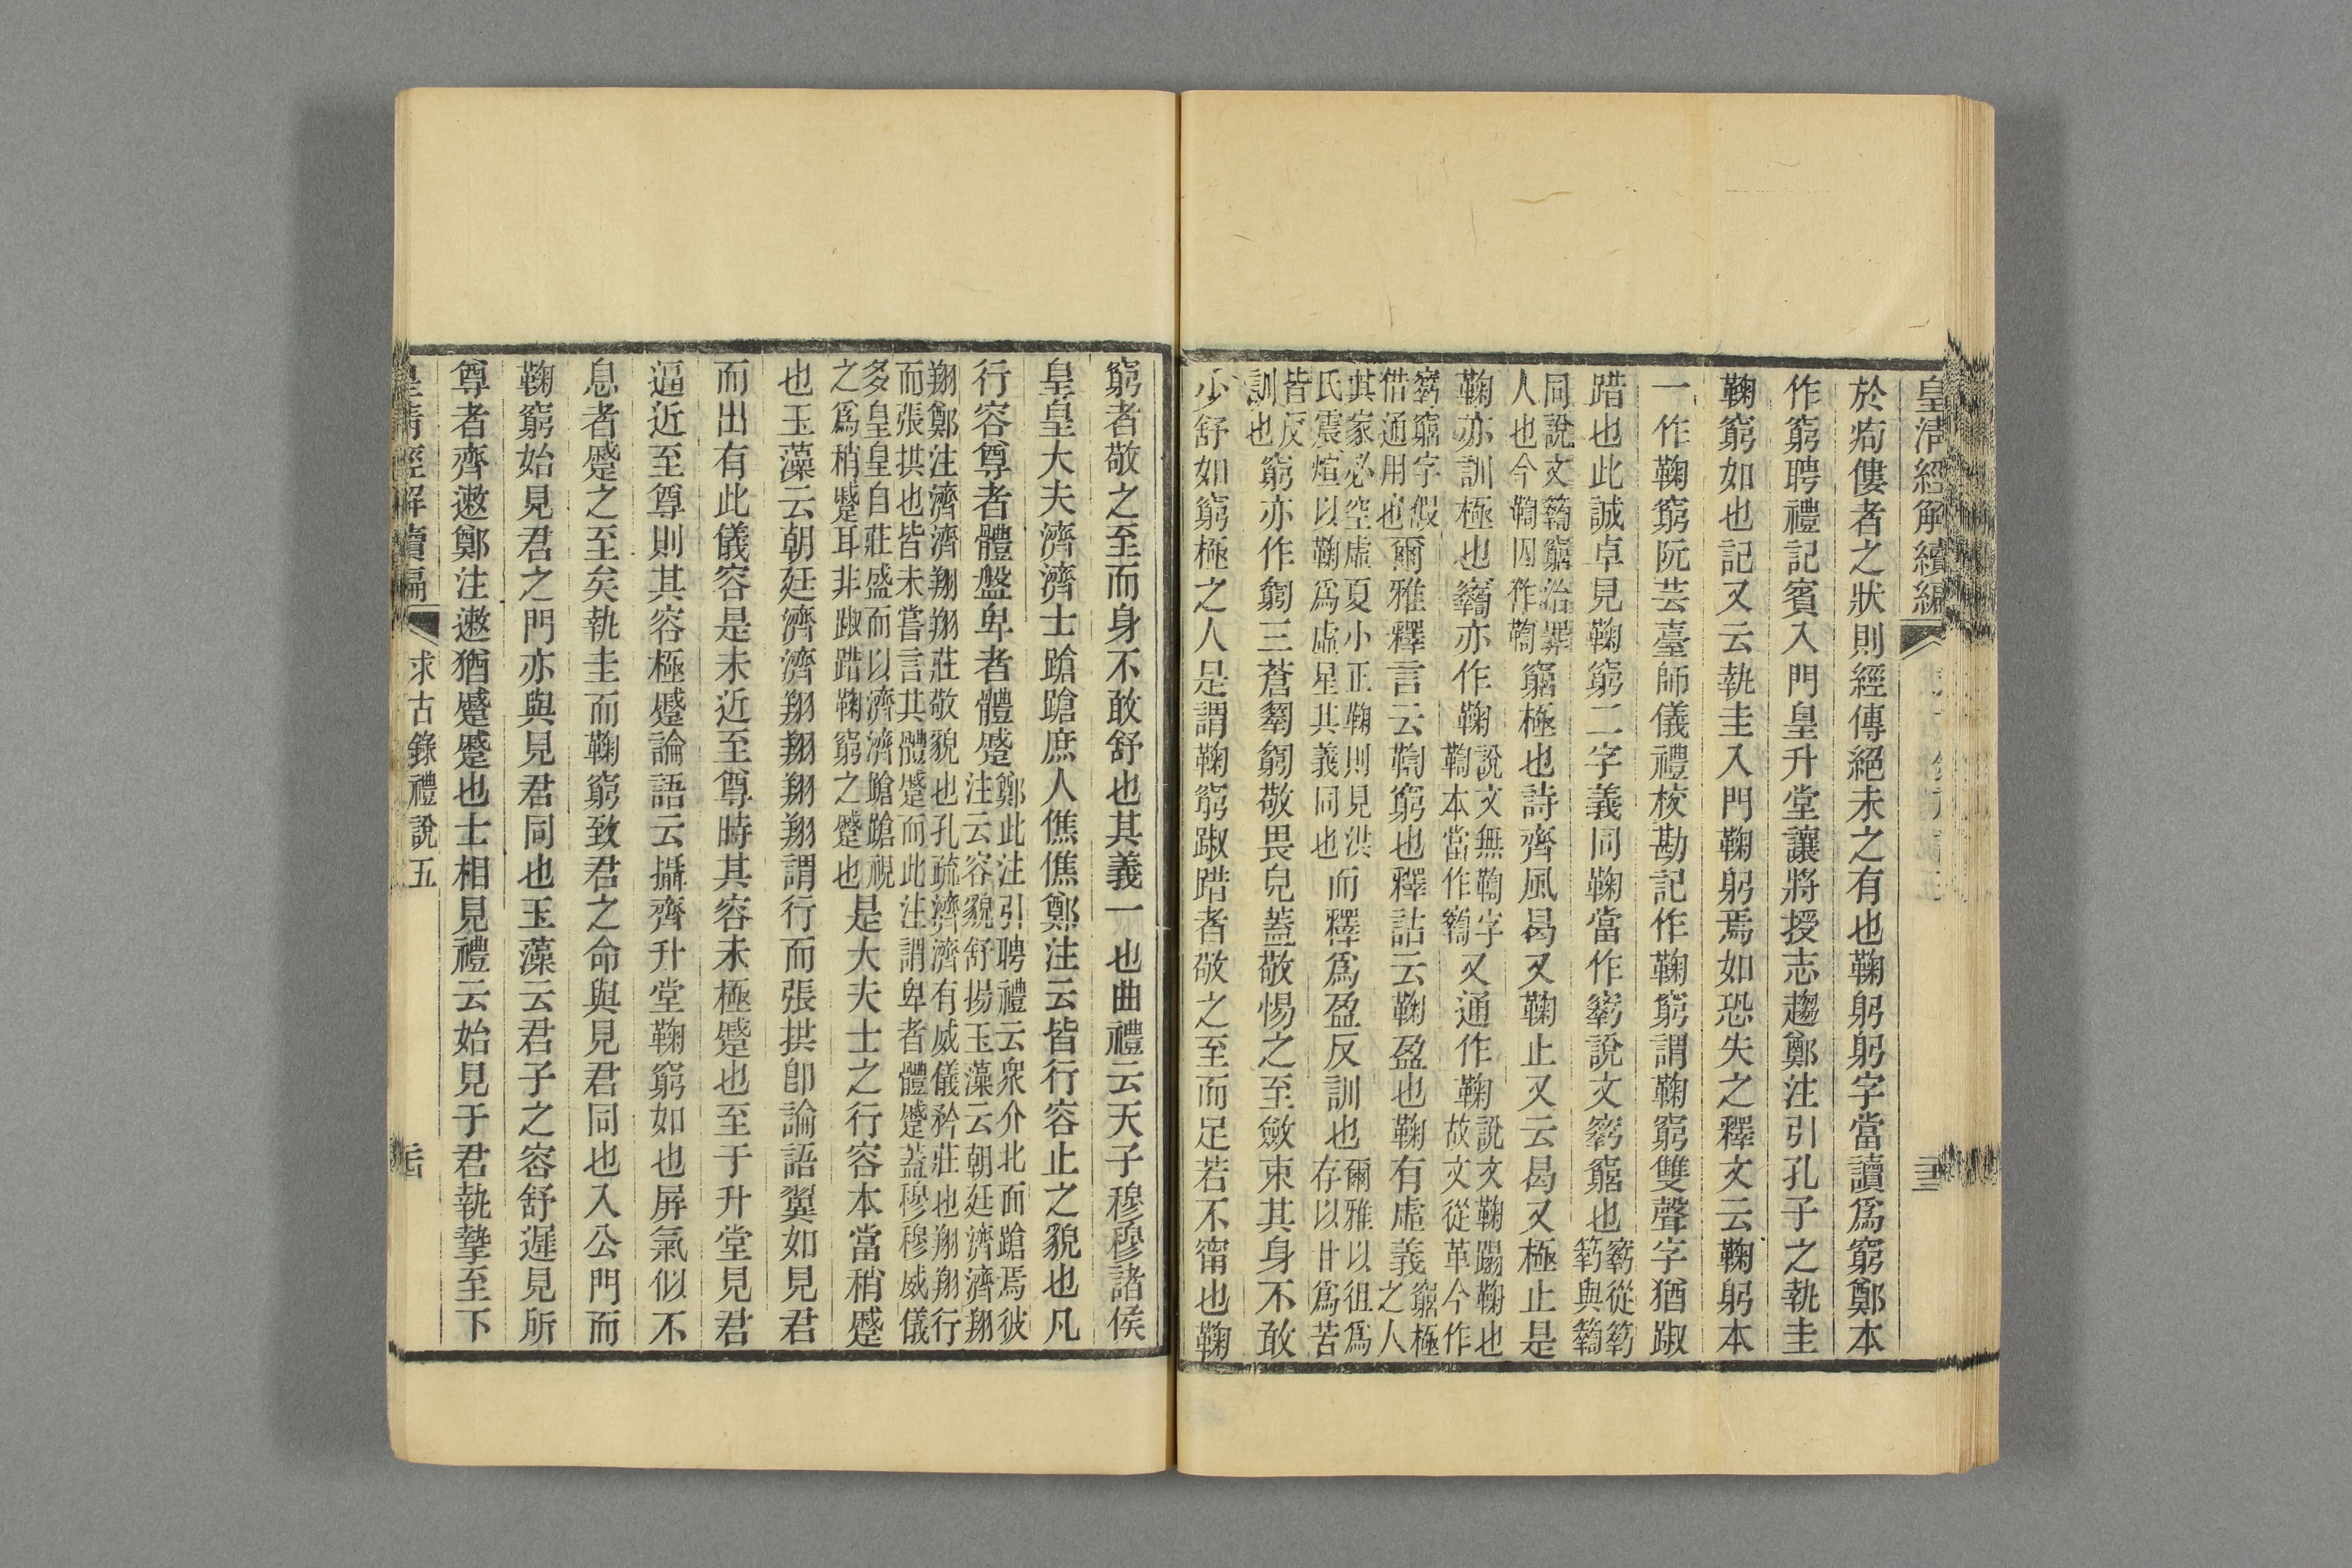 皇清經解續編
於痀僂者之狀則經傳絕未之有也鞠躬躬字當讀爲窮鄭本
作窮聘禮記賓入門皇升堂讓將授志趨鄭注引孔子之執圭
鞠窮如也記又云執圭入門鞠躬焉如恐失之釋文云鞠躬本
一作鞠窮阮芸臺師儀禮校勘記作鞠窮謂鞠窮雙聲字猶踧
踖也此誠卓見鞠窮二字義同鞠當作䆻說文䆻窮也䆻從𥷚
𥷚與籟
同說文籟窮治罪
人也今鞫囚作鞫窮極也詩齊風曷又鞠止又云曷又極止是
鞠亦訓極也䆻亦作鞠說文無鞫字
鞫本當作籟又通作鞠說文鞠蹋鞠也
故文從革今作
䆻竆字假
借通用也爾雅釋言云鞫窮也釋詁云鞠盈也鞠有虛義竆極
之人
其家必空虛夏小正鞠則見洪
氏震煊以鞠爲虛星其義同也而釋爲盈反訓也爾雅以徂爲
存以甘爲苦
皆反
訓也窮亦作匑三蒼匔匑敬畏皃蓋敬惕之至斂束其身不敢
少舒如窮極之人是謂鞠窮踧踖者敬之至而足若不甯也鞠
窮者敬之至而身不敢舒也其義一也曲禮云天子穆穆諸侯
皇皇大夫濟濟士蹌蹌庶人僬僬鄭注云皆行容止之貌也凡
行容尊者體盤卑者體蹙鄭此注引聘禮云衆介北面蹌焉彼
注云容貌舒揚玉藻云朝廷濟濟翔
翔鄭注濟濟翔翔莊敬貌也孔疏濟濟有威儀矜莊也翔翔行
而張拱也皆未嘗言其體蹙而此注謂卑者體蹙蓋穆穆威儀
多皇皇自莊盛而以濟濟蹌蹌視
之爲稍蹙耳非踧踖鞠窮之蹙也是大夫士之行容本當稍蹙
也玉藻云朝廷濟濟翔翔翔翔謂行而張拱卽論語翼如見君
而出有此儀容是未近至尊時其容未極蹙也至于升堂見君
逼近至尊則其容極蹙論語云攝齊升堂鞠窮如也屏氣似不
息者蹙之至矣執圭而鞠窮致君之命與見君同也入公門而
鞠窮始見君之門亦與見君同也玉藻云君子之容舒遲見所
尊者齊遬鄭注遬猶蹙蹙也士相見禮云始見于君執摯至下
皇清經解續編
求古錄禮說五